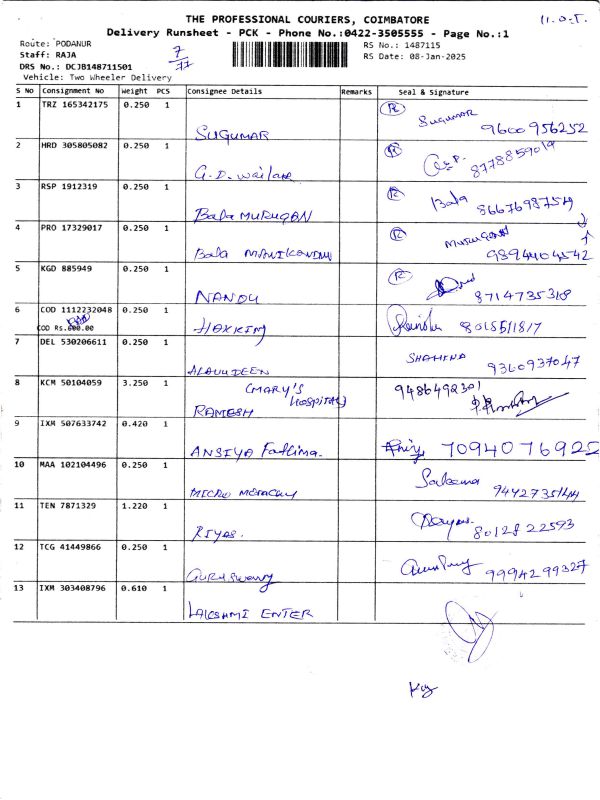 THE PROFESSIONAL COURIERS, COIMBATORE
Delivery Runsheet - PCK - Phone No.:0422-3505555 - Page No.:1
Route: PODANUR
RS No.: 1487115
Staff: RAJA
RS Date: 08-Jan-2025
DRS No.: DCJB148711501
Vehicle: Two Wheeler Delivery
7/77
S No Consignment No Weight PCS Consignee Details Remarks Seal & Signature
1 TRZ 165342175 0.250 1 SUGUMAR R Sugumar 9600956252
2 HRD 305805082 0.250 1 G.D. R 8778859019
3 RSP 1912319 0.250 1 Bala MURUGAN R Bala 8667698754
4 PRO 17329017 0.250 1 Bala R MURUGAN 9894404542
5 KGD 885949 0.250 1 NANDU R 8714735318
6 COD 1112232048 0.250 1 HAKKIM
COD RS.600.00
7 DEL 530206611 0.250 1 ALAUUDEEN SHAHINA 9360937047
8 KCM 50104059 3.250 1 RAMESH (MARY'S HOSPITAL) 9486492301
9 IXM 507633742 0.420 1 ANSIYA Fathima. 7094076922
10 MAA 102104496 0.250 1 MICRO Sakeena
11 TEN 7871329 1.220 1 RIYAS. 8012822593
12 TCG 41449866 0.250 1 GURUSWAMY 9994299327
13 IXM 303408796 0.610 1 LAKSHMI ENTER